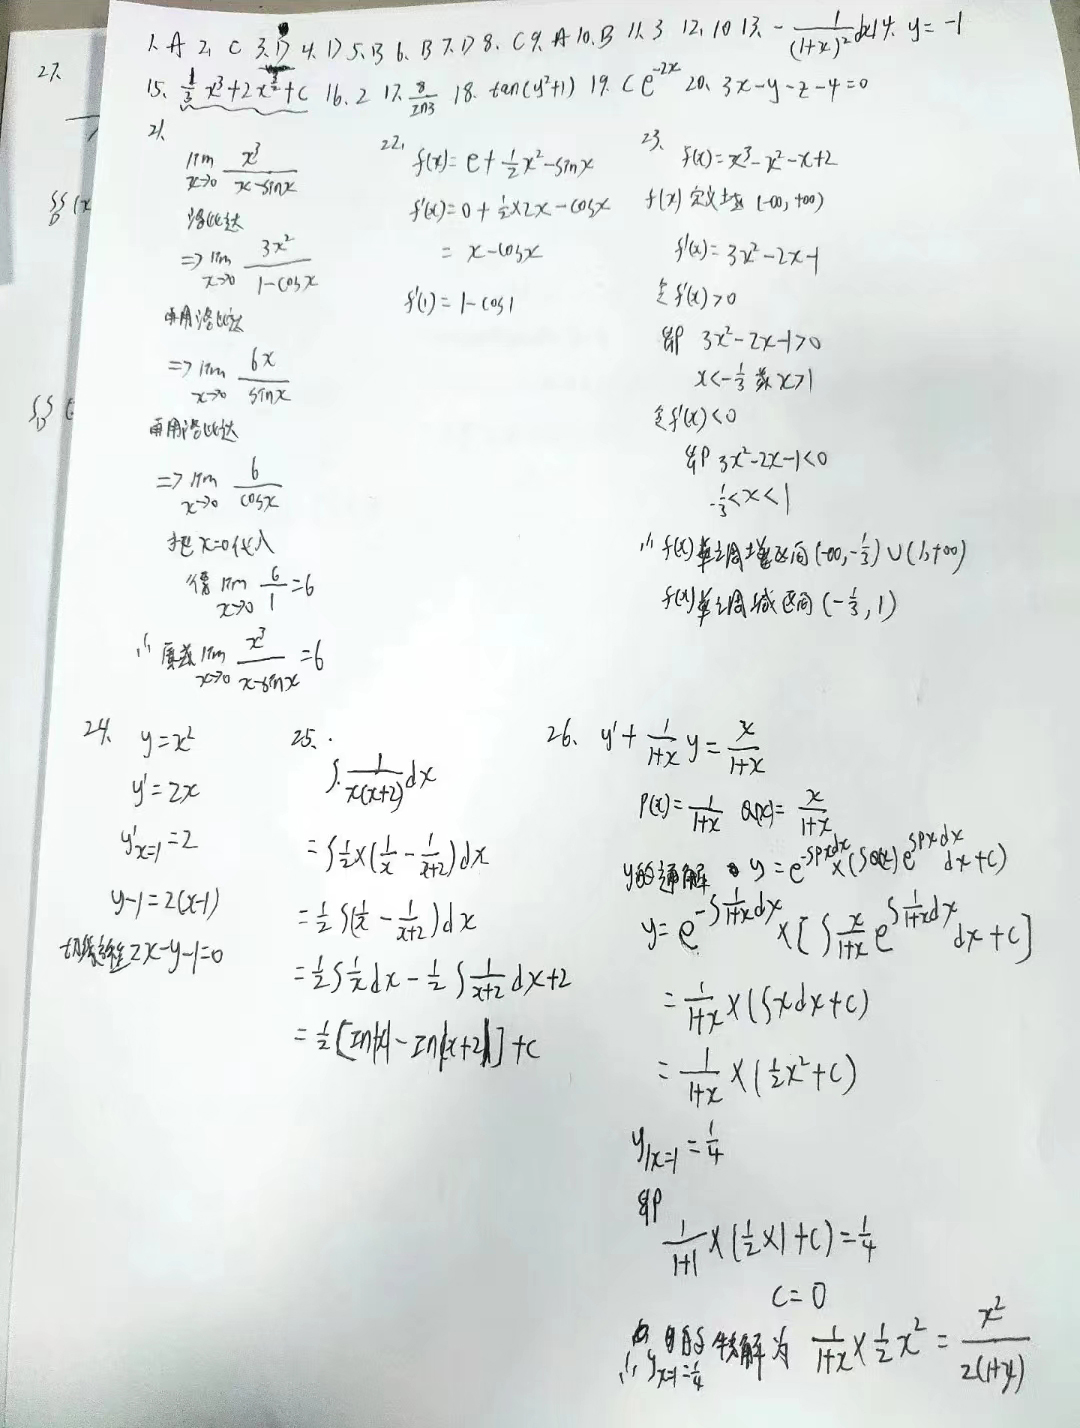 1. A 2. C 3. D 4. D 5. B 6. B 7. D 8. C 9. A 10. B 11. 3 12. 10 13. -1/(1+x)² dx 14. y=-1
15. 1/3 x³+2x^(3/2)+C 16. 2 17. 8/ln3 18. tan(y²+1) 19. Ce^(-2x) 20. 3x-y-z-4=0
21.
lim x→0 x³/(x-sinx)
洛比达
=> lim x→0 3x²/(1-cosx)
再用洛比达
=> lim x→0 6x/sinx
再用洛比达
=> lim x→0 6/cosx
把x=0代入
得 lim x→0 6/1=6
∴ 原式 lim x→0 x³/(x-sinx)=6
22.
f(x)=e+1/2x²-sinx
f'(x)=0+1/2×2x-cosx
=x-cosx
f'(1)=1-cos1
23.
f(x)=x³-x²-x+2
f(x)定义域(-∞,+∞)
f'(x)=3x²-2x-1
令f'(x)>0
即 3x²-2x-1>0
x<-1/3 或 x>1
令f'(x)<0
即 3x²-2x-1<0
-1/3<x<1
∴ f(x)单调增区间(-∞,-1/3)∪(1,+∞)
f(x)单调减区间(-1/3,1)
24. y=x²
y'=2x
y'x=1=2
y-1=2(x-1)
切线方程2x-y-1=0
25.
∫ 1/(x(x+2)) dx
=∫1/2×(1/x-1/(x+2))dx
=1/2∫(1/x-1/(x+2))dx
=1/2∫1/x dx-1/2∫1/(x+2) dx+2
=1/2[ln|x|-ln|x+2|]+C
26. y'+1/(1+x) y=x/(1+x)
P(x)=1/(1+x) Q(x)=x/(1+x)
y的通解 y=e^(-∫Pxdx)×(∫Q(x)e^(∫Pxdx)dx+C)
y=e^(-∫1/(1+x)dx)×[∫x/(1+x) e^(∫1/(1+x)dx)dx+C]
=1/(1+x)×(∫xdx+C)
=1/(1+x)×(1/2x²+C)
y|x=1=1/4
即
1/(1+1)×(1/2×1+C)=1/4
C=0
∴ yx=1=1/4 的特解为 1/(1+x)×1/2x²=x²/(2(1+x))
27.
∬D(x
∬D(